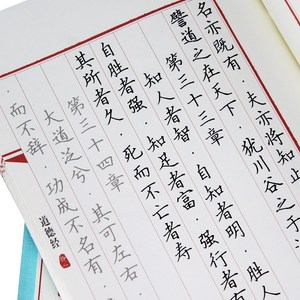 名亦既有·夫亦将知止
譬道之在天下·犹川谷之于
第三十三章
知人者智·自知者明·胜
自胜者强·知足者富·强行者有
其所者久·死而不亡者寿
第三十四章
大道泛兮·其可左右
而不辞·功成不名有
道德经